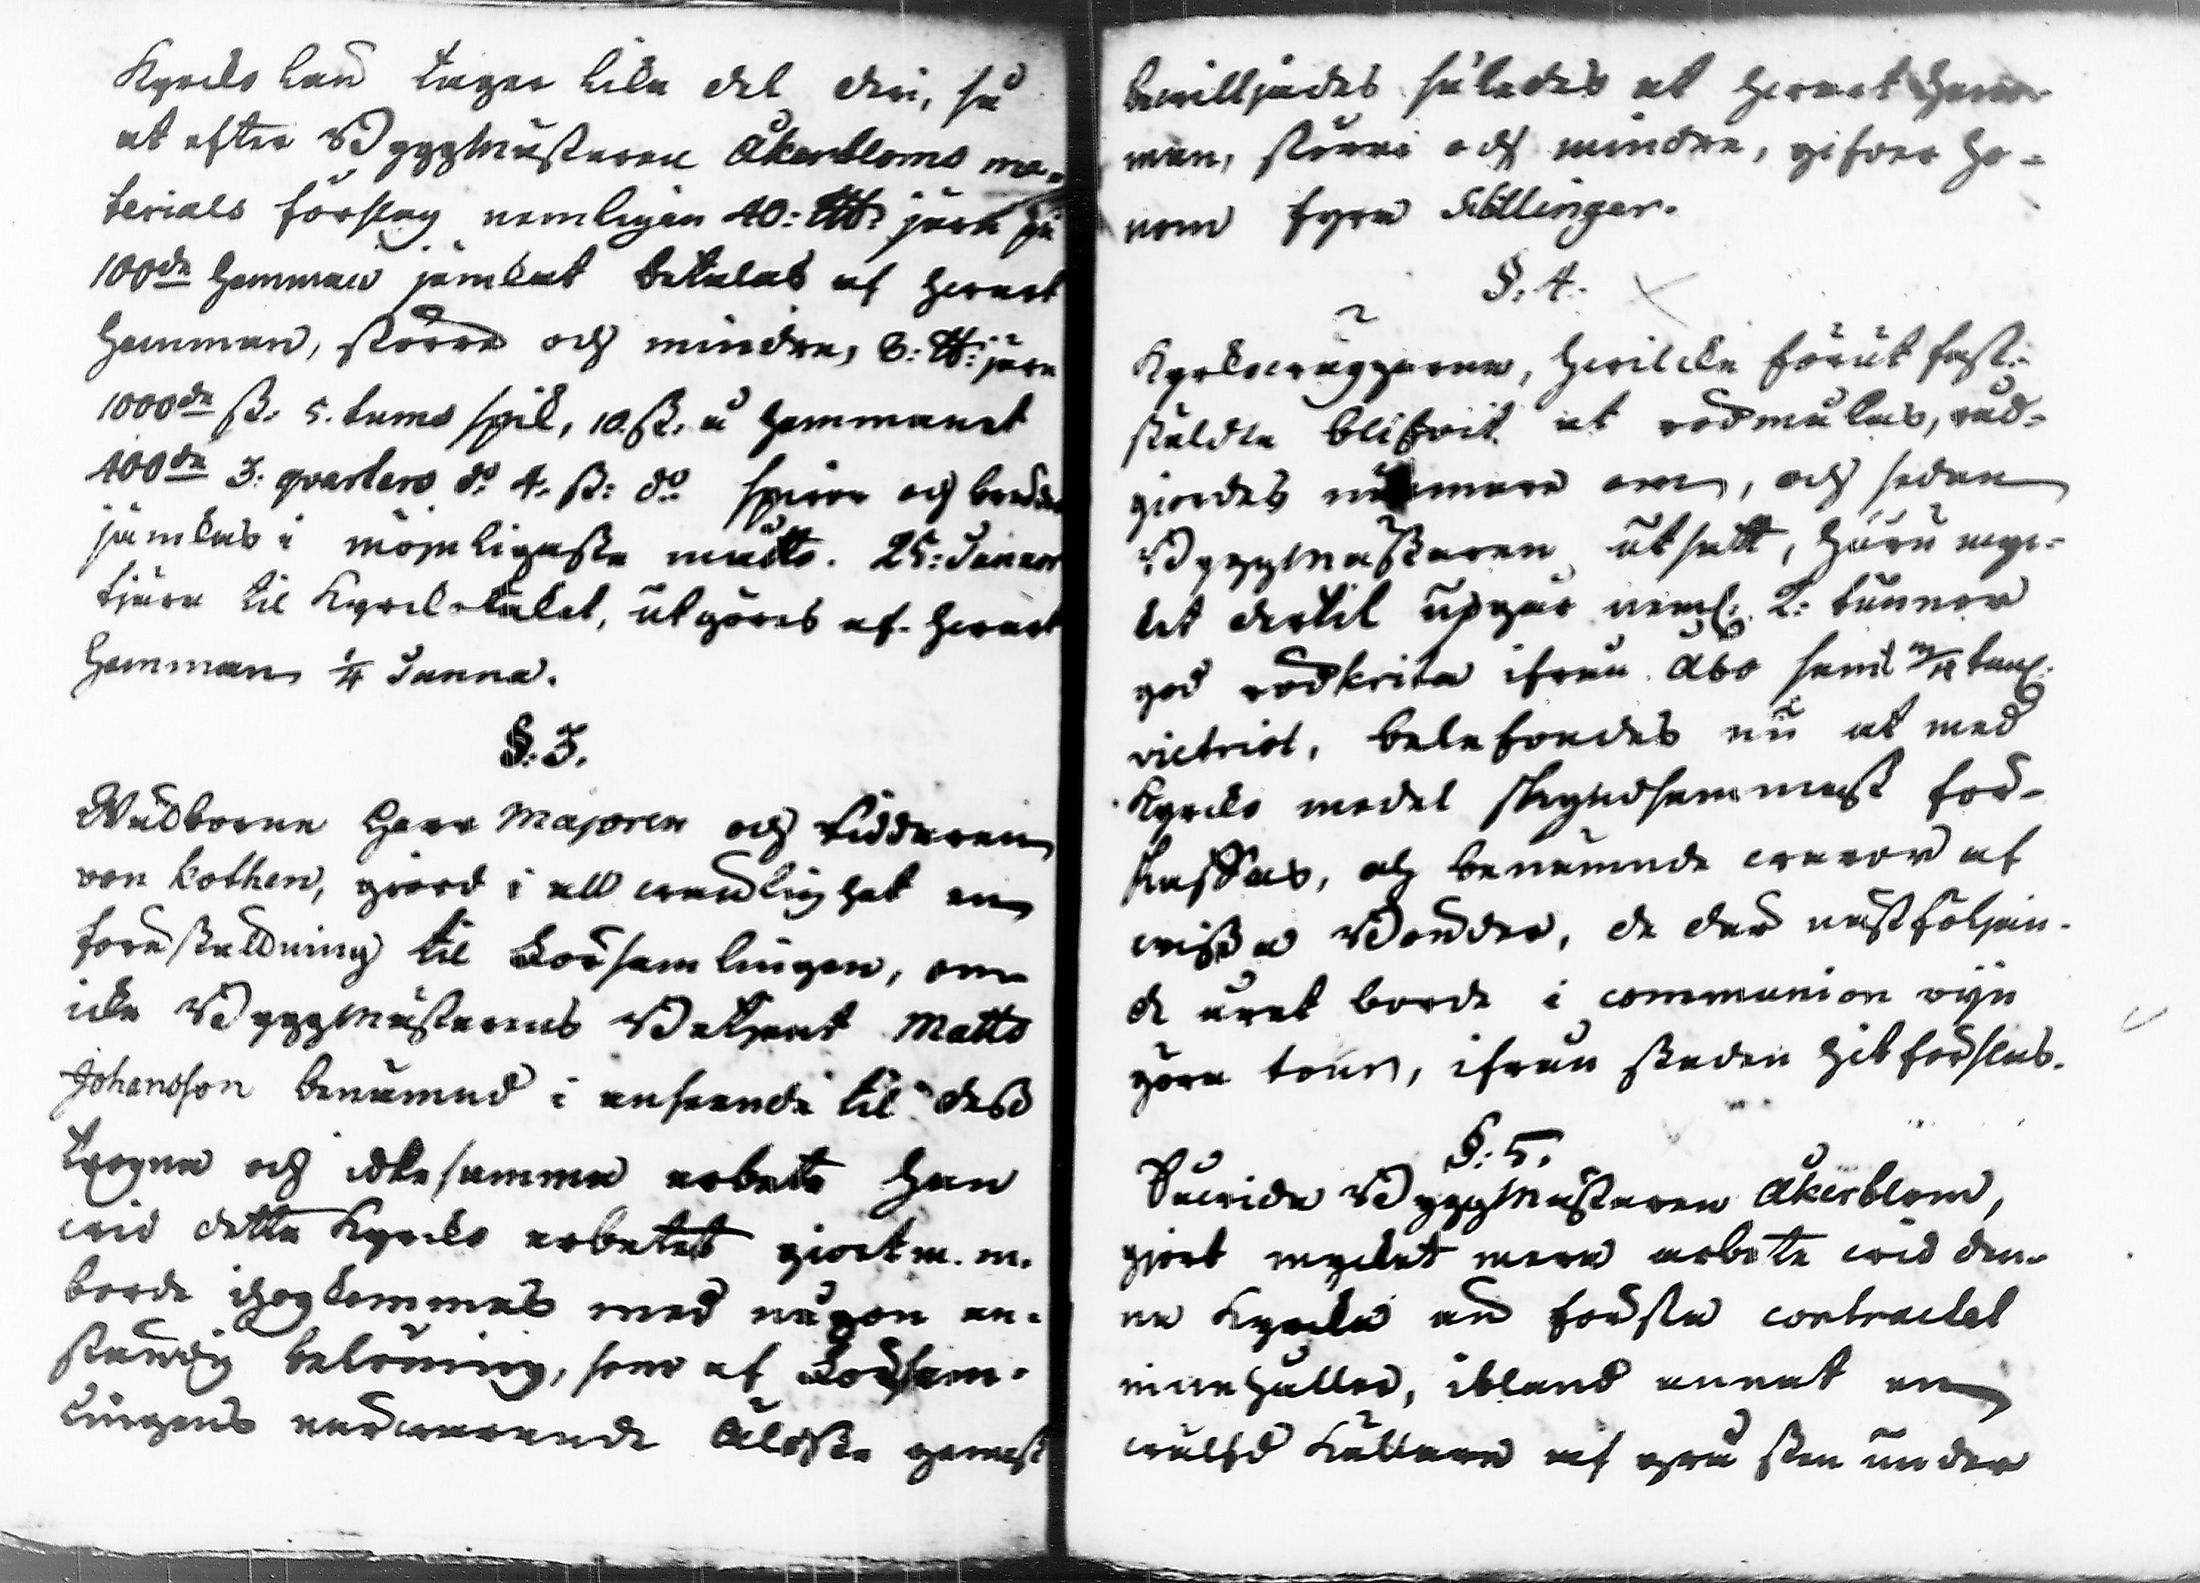 Kyrcko land tager lika del deri, så
at efter Byggmästaren Åkerbloms ma-
terials förslag nemligen 40: ℔: järn på
100de hemman jämkat betalas af hvart
hemman, större och mindre, 8: ℔: järn
1000de st. 5. tums spik, 10. st. å hemmanet
400de 3. qvarters do 4. st: do och bräder
jämkas i möjeligaste måtto. 25: Tunnor
tjära til Kyrcktaket, utgöres af hvart
hemman 1/4 Tunna.
§. 3.
Wälborne Herr Majoren och Ridderen
von Kothen, giord i all wänlighet en
föreställning til Församlingen, om
icke Byggmästarens Matts
Johansson benämnd i anseende til dess
trogna och idkesamma arbete han
wid detta Kyrcko arbetet giort m. m.
borde ihogkommas med någon an-
ständig belöning, som af Församl-
lingens närwarande Äldsta genast
bewilljades således at hvart hem-
man, större och mindre, gifver ho-
nom fyra Skillingar.
§. 4.
Kyrckowäggarna, hwilcka förut fast-
stäldte blifvit at rödmålas, råd-
giordes nu mera om, och sedan
Byggmästaren utsatt, huru myc-
ket dertil upgår neml. 2: tunnor
god rödkrita ifrån Åbo samt
victriol, belefvades nu at med
Kyrcko medel skyndsammast för-
skaffas, och benämnde waror af
wissa Bönder, de der nästföljan-
de året borde i communion vijn
göra tour, ifrån staden hitförslas.
§. 5.
Såwida Byggmästaren Åkerblom,
giort mycket mera arbete wid den-
na Kyrcka än första contractet
innehåller, ibland annat en
wälfd Källare af grå sten under